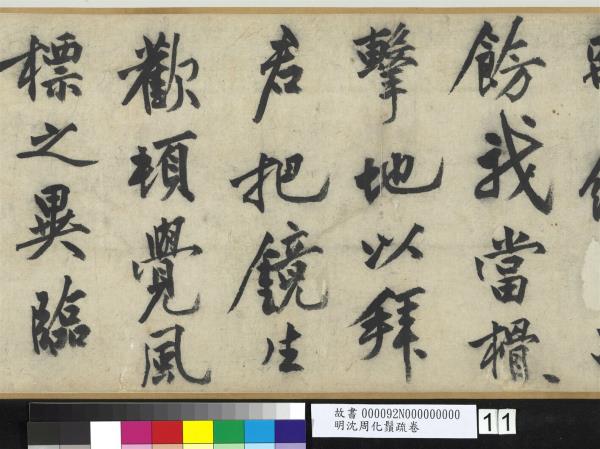 餝我當
擊地以拜
君把鏡生
歡頓覺風
標之異臨
故書 000092N000000000
明沈周化鬚疏卷
11